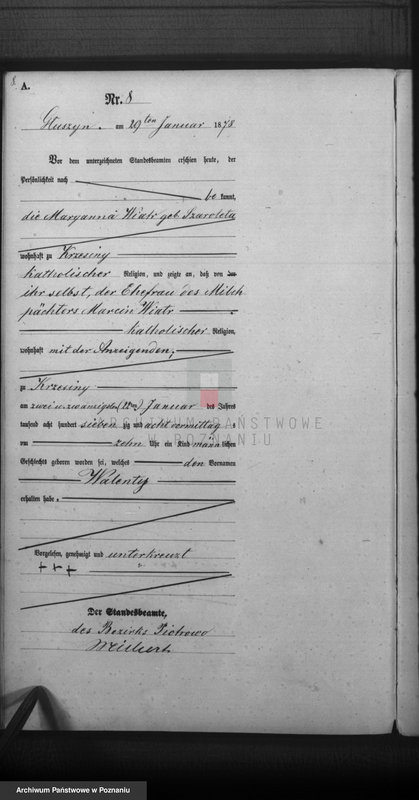 8
A.
Nr. 8
Gluszyn. am 29ten Januar 1878
Vor dem unterzeichneten Standesbeamten erschien heute, der
Persönlichkeit nach
be kannt,
die Maryanna Wiatr geb.
wohnhaft zu Krzesiny
katholischer Religion, und zeigte an, daß von der
ihr selbst, der Ehefrau des Milch
pächters Marcin Wiatr
katholischer Religion,
wohnhaft mit der Anzeigenden,
zu Krzesiny
am zwei u. zwanzigsten (22ten) Januar des Jahres
tausend acht hundert sieben zig und acht vormittag s
um zehn Uhr ein Kind männlichen
Geschlechts geboren worden sei, welches den Vornamen
Walenty
erhalten habe.
Vorgelesen, genehmigt und unterkreuzt
+++
Der Standesbeamte,
des Bezirks Piotrowo
ARCHIWUM PAŃSTWOWE
W POZNANIU
Archiwum Państwowe w Poznaniu